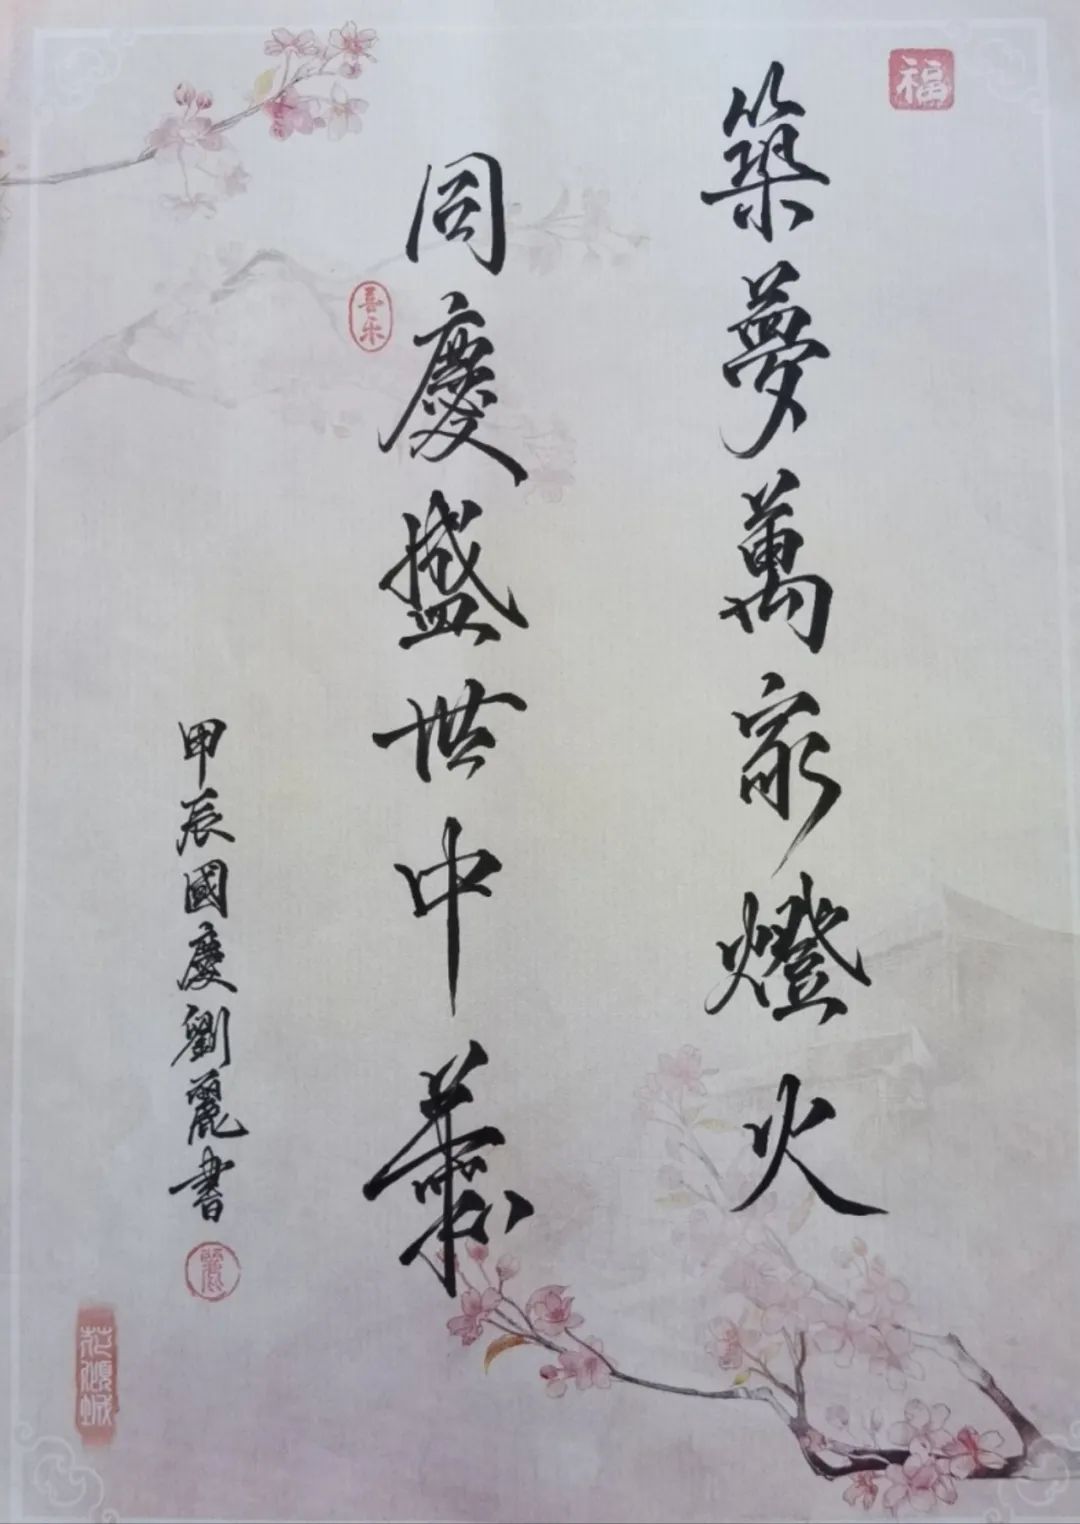 福
築夢萬家燈火
喜乐
同慶盛世中華
甲辰國慶劉麗書
麗
花傾城